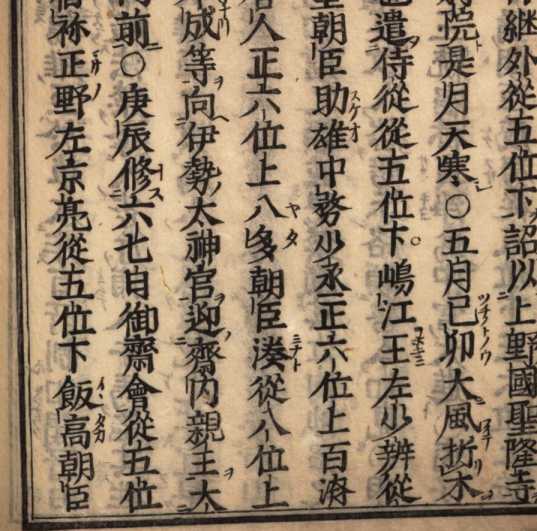 継外從五位下詔以上野國聖隆寺
院是月天寒○五月己卯大風折木
遣侍從從五位下嶋江王左少辨從
朝臣助雄中務少丞正六位上百濟
人正六位上八多朝臣湊從八位上
成等向伊勢太神宮迎齋內親王大
前○庚辰修六七日御齋會從五位
祢正野左京亮從五位下飯高朝臣